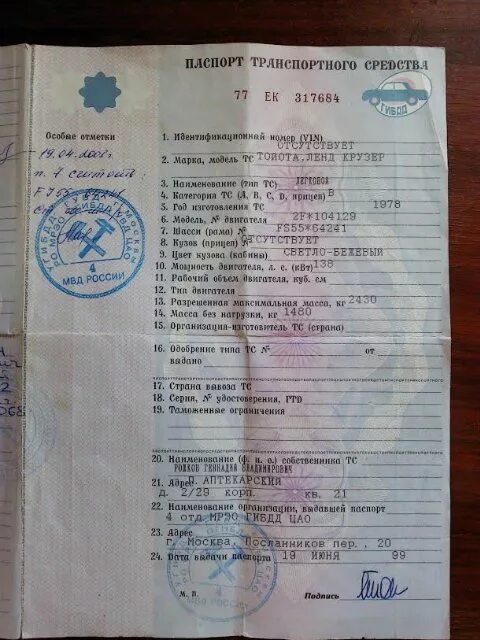 ПАСПОРТ ТРАНСПОРТНОГО СРЕДСТВА
77 ЕК 317684
ГИБДД
Особые отметки
19.04.2001г
1. Идентификационный номер (VIN)
ОТСУТСТВУЕТ
2. Марка, модель ТС ТОЙОТА ЛЕНД КРУЗЕР
3. Наименование (тип ТС) ЛЕГКОВОЙ
4. Категория ТС (А, В, С, D, прицеп) В
5. Год изготовления ТС 1978
6. Модель, № двигателя 2F*104129
7. Шасси (рама) № FS55*64241
8. Кузов (прицеп) № ОТСУТСТВУЕТ
9. Цвет кузова (кабины) СВЕТЛО-БЕЖЕВЫЙ
10. Мощность двигателя, л. с. (кВт) 138
11. Рабочий объем двигателя, куб. см
12. Тип двигателя
13. Разрешенная максимальная масса, кг 2430
14. Масса без нагрузки, кг 1480
15. Организация-изготовитель ТС (страна)
16. Одобрение типа ТС № от
выдано
17. Страна вывоза ТС
18. Серия, № удостоверения, ГТД
19. Таможенные ограничения
20. Наименование (ф. и. о.) собственника ТС
ГЕННАДИЙ ВЛАДИМИРОВИЧ
21. Адрес П. АПТЕКАРСКИЙ
д. 2/29 корп. кв. 21
22. Наименование организации, выдавшей паспорт
4 отд МРЭО ГИБДД ЦАО
23. Адрес
г. Москва, Посланников пер., 20
24. Дата выдачи паспорта 19 ИЮНЯ 99
М. П. Подпись
4
МВД РОССИИ
4
МВД РОССИИ